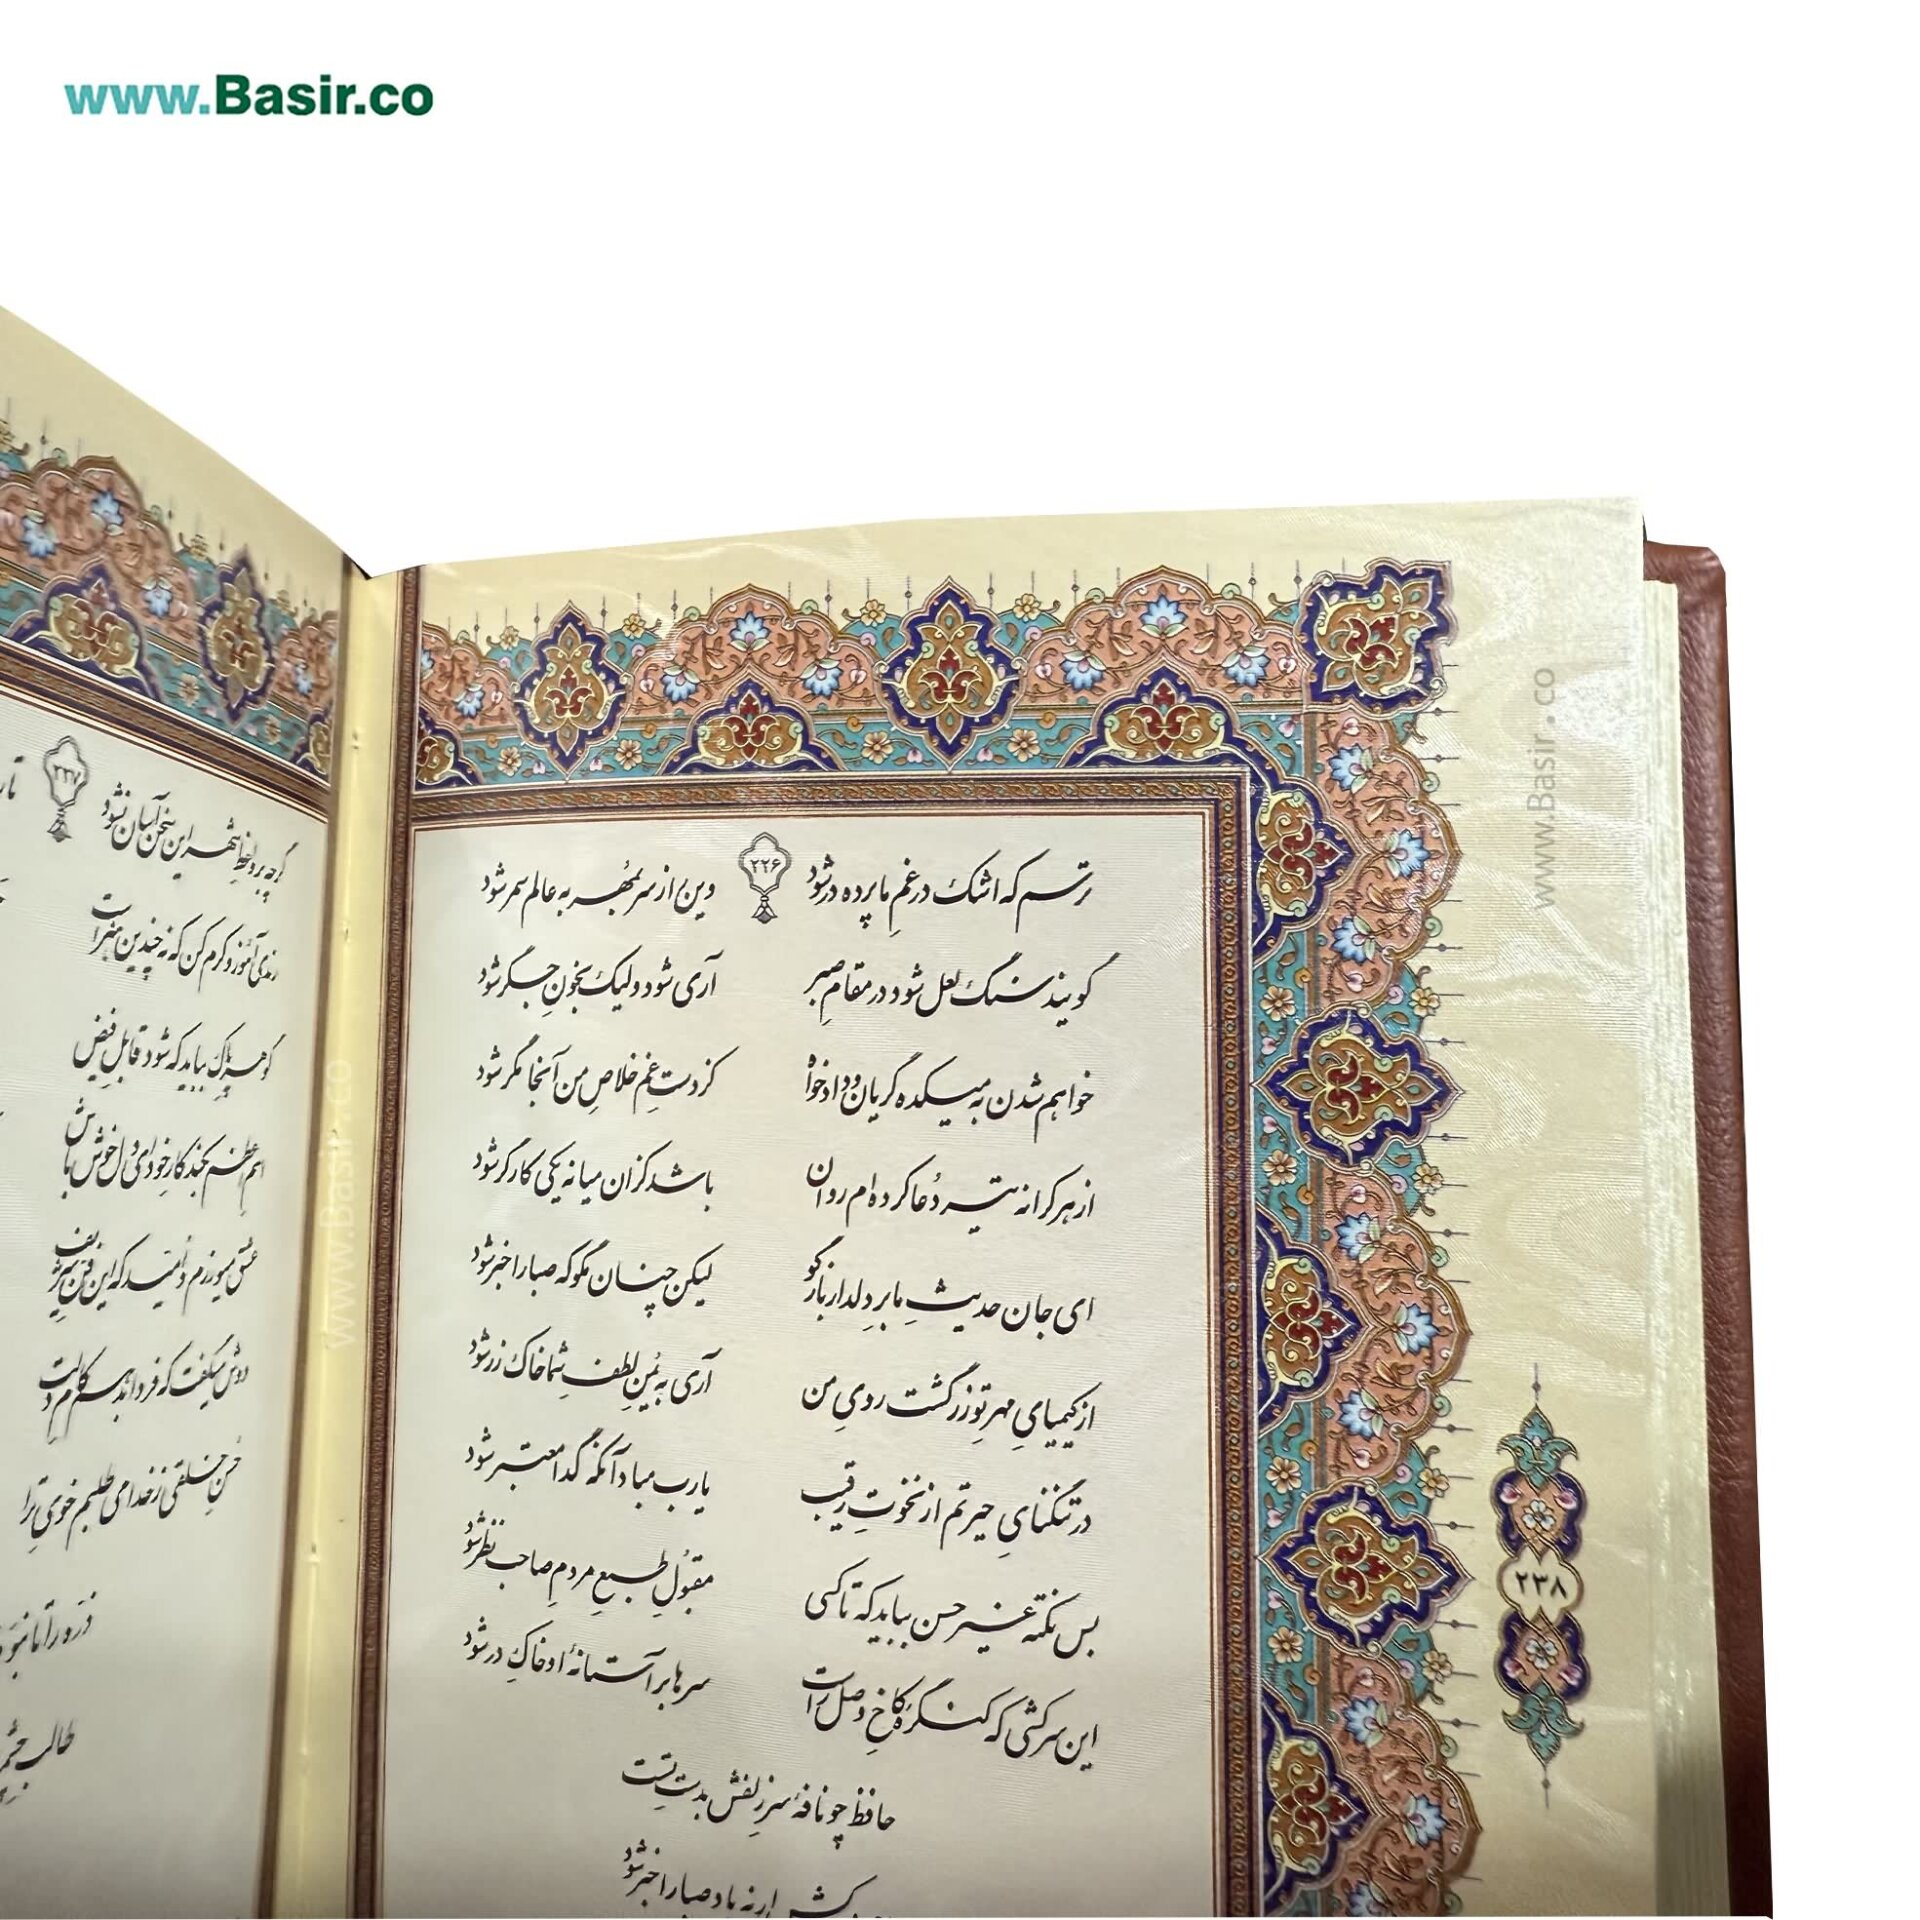 www.Basir.co
ترسم که اشک در غمِ ما پرده در شود ۲۲۶ وین راز سر بمُهر به عالم سمر شود
گویند سنگ لعل شود در مقامِ صبر آری شود ولیک بخونِ جگر شود
خواهم شدن به میکده گریان و دادخواه کز دستِ غم خلاصِ من آنجا مگر شود
از هر کرانه تیر دُعا کرده‌ام روان باشد کزان میانه یکی کارگر شود
ای جان حدیثِ ما برِ دلدار بازگو لیکن چنان مگو که صبا را خبر شود
از کیمیایِ مهرِ تو زر گشت رویِ من آری به یُمنِ لطفِ شما خاک زر شود
در تنگنایِ حیرتم از نخوتِ رقیب یارب مباد آنکه گدا معتبر شود
بس نکته غیر حسن بباید که تا کسی مقبولِ طبعِ مردمِ صاحب نظر شود
این سرکشی که کنگرهٔ کاخِ وصل راست سرها بر آستانهٔ او خاکِ در شود
حافظ چو نافهٔ سرِ زلفش بدستِ تست
باد صبا را خبر شود
۲۳۸
گرچه بر واعظِ شهر این سخن آسان نشود ۲۲۷
رندی آموز و کرم کن که نه چندین هنرست
گوهرِ پاک بباید که شود قابلِ فیض
اسم اعظم بکند کارِ خود ای دل خوش باش
عشق میورزم و امید که این فن شریف
دوش میگفت که فردا بدهم کام دلت
حُسنِ خلقی ز خدا می طلبم خوی ترا
ذره را تا نبود
طالب چشمه
www.Basir.co
www.Basir.co